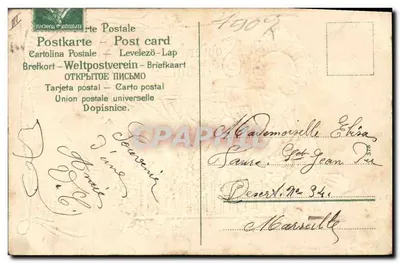 1907
Carte Postale
Postkarte - Post card
Cartolina Postale - Levelező-Lap
Brefkort - Weltpostverein - Briefkaart
ОТКРЫТОЕ ПИСЬМО
Tarjeta postal - Carto postal
Union postale universelle
Dopisnice.
Souvenir
d'une
Amie
Mademoiselle Elisa
Jean
Desert. No 34.
Marseille